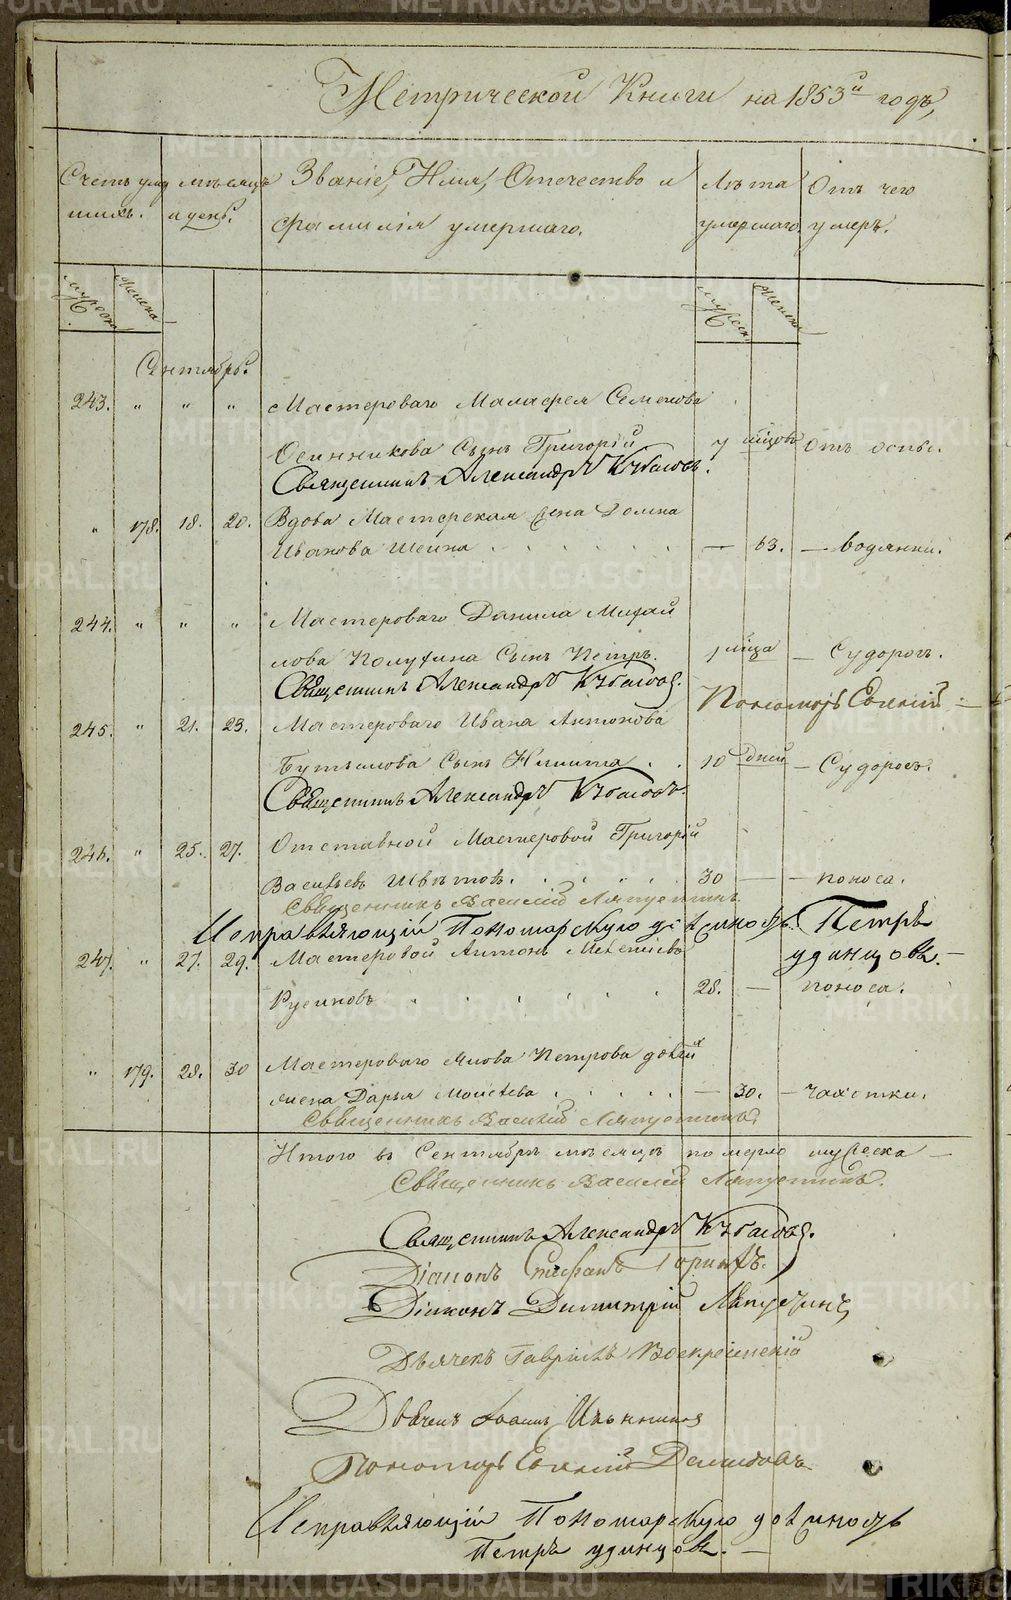 Метрической Книги на 1853й годъ,
Счетъ умер мѣсяцъ Званіе, Имя, Отечество и Лѣта Отъ чего
шихъ. и день. фамилія умершаго. умершаго. умеръ.
мужеска женска мужеск. женска
Сентябрь.
243. " " " Мастероваго Малафея Семенова
Осинникова Сынъ Григорій 7 мѣсцовъ Отъ оспы.
Священникъ Александръ
" 178. 18. 20. Вдова Мастерская жена Домна
Иванова Шеина — 63. — водянки.
244. " " " Мастероваго Данила Михай
лова Полухина Сынъ Петръ. 1 мѣца — Судорогъ.
Священникъ Александръ
Пономарь Евгеній
245. " 21. 23. Мастероваго Ивана Антонова
Бутылова Сынъ Никита . . 10 дней — Судорогъ.
Священникъ Александръ
246. " 25. 27. Отставной Мастеровой Григорій
Васильевъ 30 — — поноса.
Священникъ Василій Ляпустинъ
Исправляющій Пономарскую должность Петръ
Удинцовъ. —
247. " 27. 29. Мастеровой Антонъ
Русиновъ 28. — поноса.
" 179. 28. 30 Мастероваго Якова Петрова
жена Дарья Моисеева — 30. — чахотки.
Священникъ Василій Ляпустинъ
Итого въ Сентябрѣ мѣсяцѣ померло мужеска —
Священникъ Василій Ляпустинъ.
Священникъ Александръ
Діаконъ Стефанъ
Діаконъ Димитрій Ляпустинъ
Дьячекъ Гавріилъ Воскресенскій
Дьячекъ Іоаннъ
Пономарь Евгеній Демидовъ
Исправляющій Пономарскую должность
Петръ Удинцовъ. —
METRIKI.GASO-URAL.RU